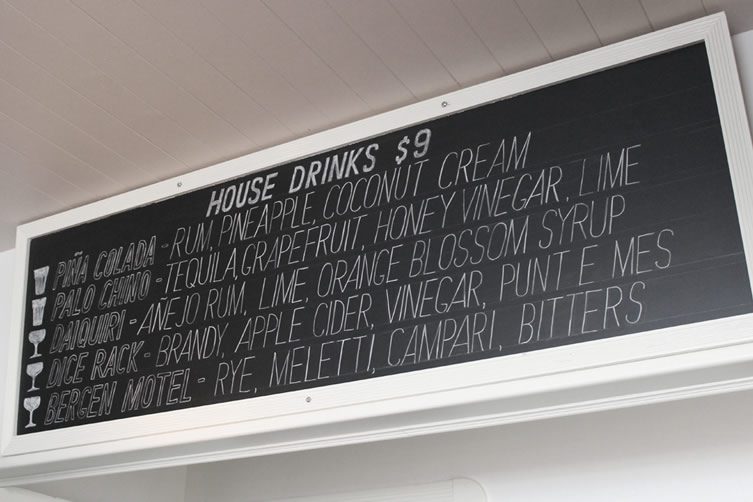 HOUSE DRINKS $9
PIÑA COLADA - RUM, PINEAPPLE, COCONUT CREAM
PALO CHINO - TEQUILA, GRAPEFRUIT, HONEY VINEGAR, LIME
DAIQUIRI - AÑEJO RUM, LIME, ORANGE BLOSSOM SYRUP
DICE RACK - BRANDY, APPLE CIDER, VINEGAR, PUNT E MES
BERGEN MOTEL - RYE, MELETTI, CAMPARI, BITTERS